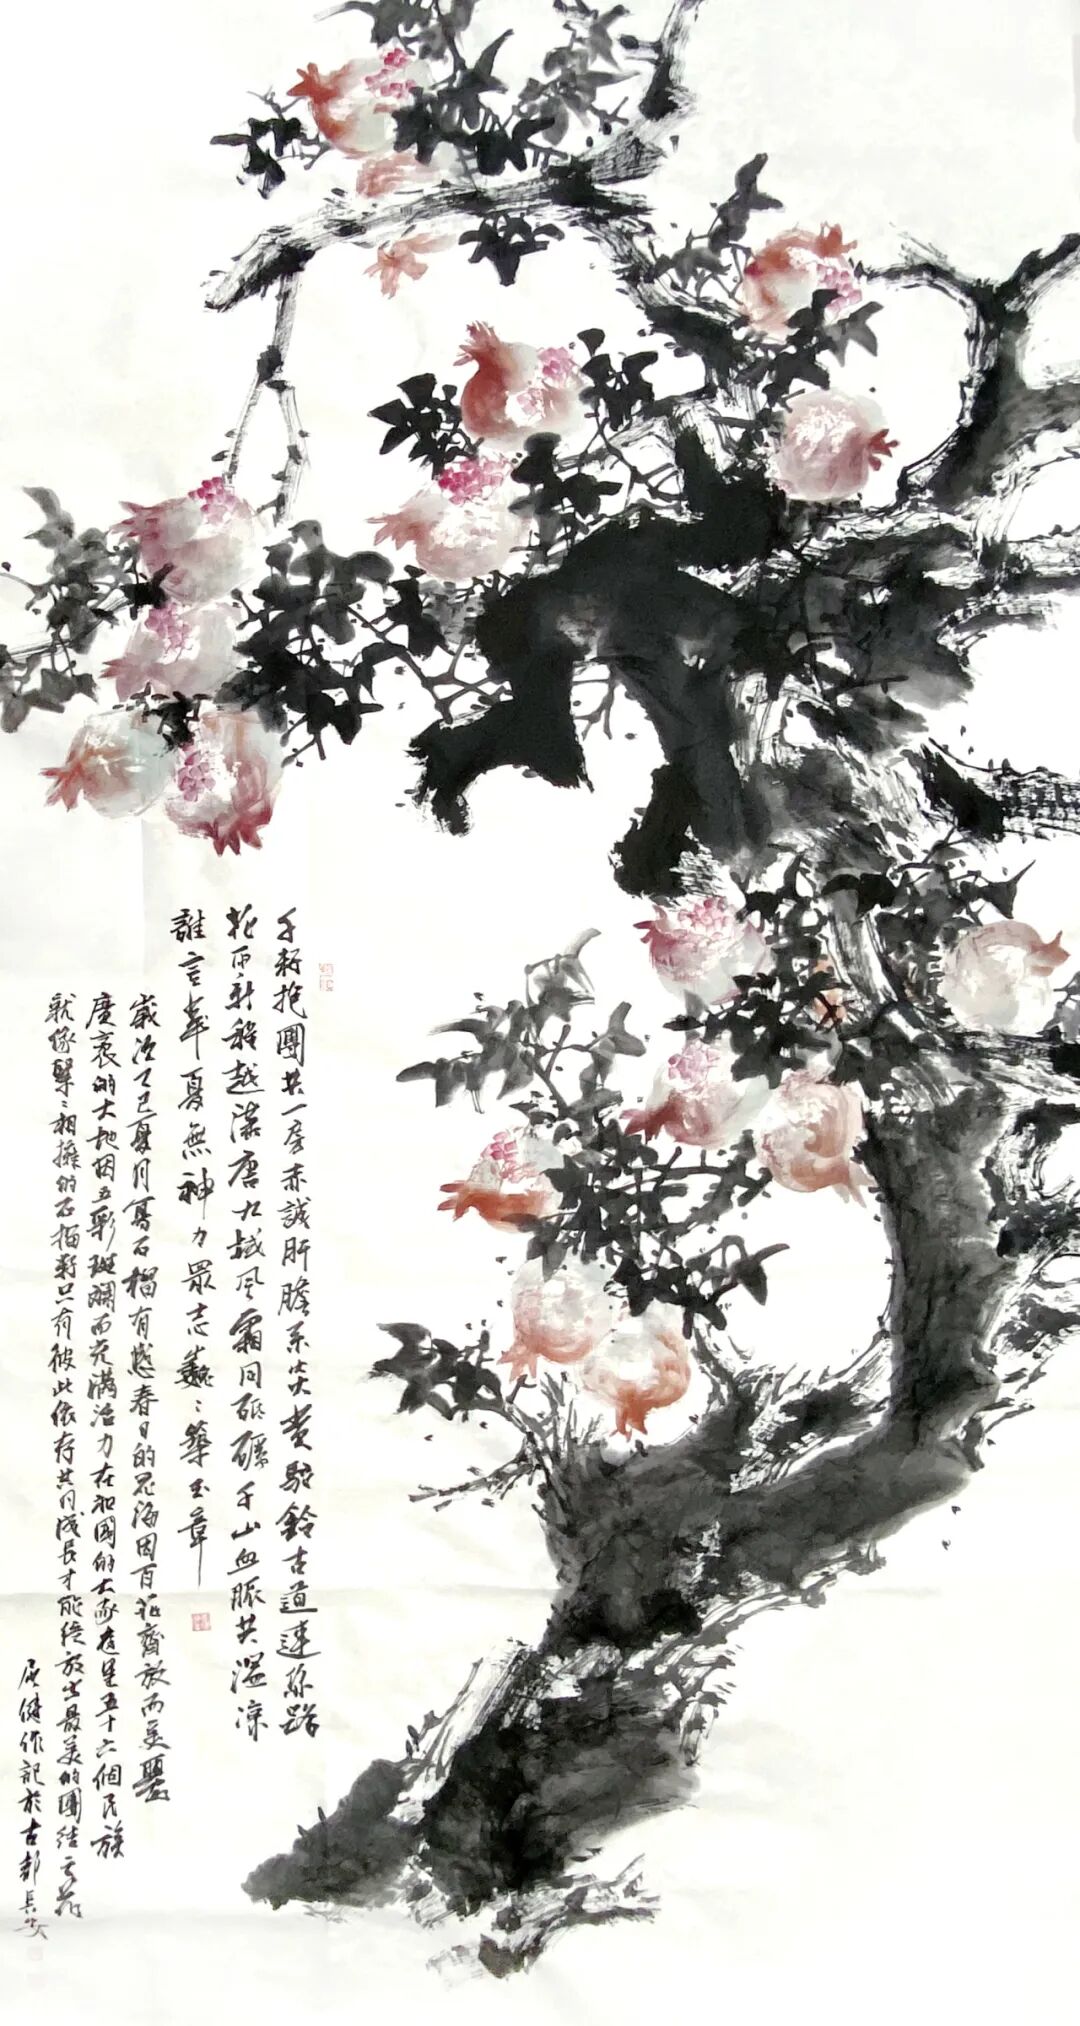 千籽抱團共一房赤誠肝膽系炎黃駝鈴古道連絲路
花雨新程越漢唐九域風霜同砥礪千山血脈共溫涼
誰言華夏無神力眾志巍〻築玉章
歲次乙巳夏月寫石榴有感春日的花海因百花齊放而美麗
廣袤的大地因五彩斑斕而充滿活力在祖國的大家庭里五十六個民族
就像緊〻相擁的石榴籽只有彼此依存共同成長才能綻放出最美的團結之花
作記於古都長安